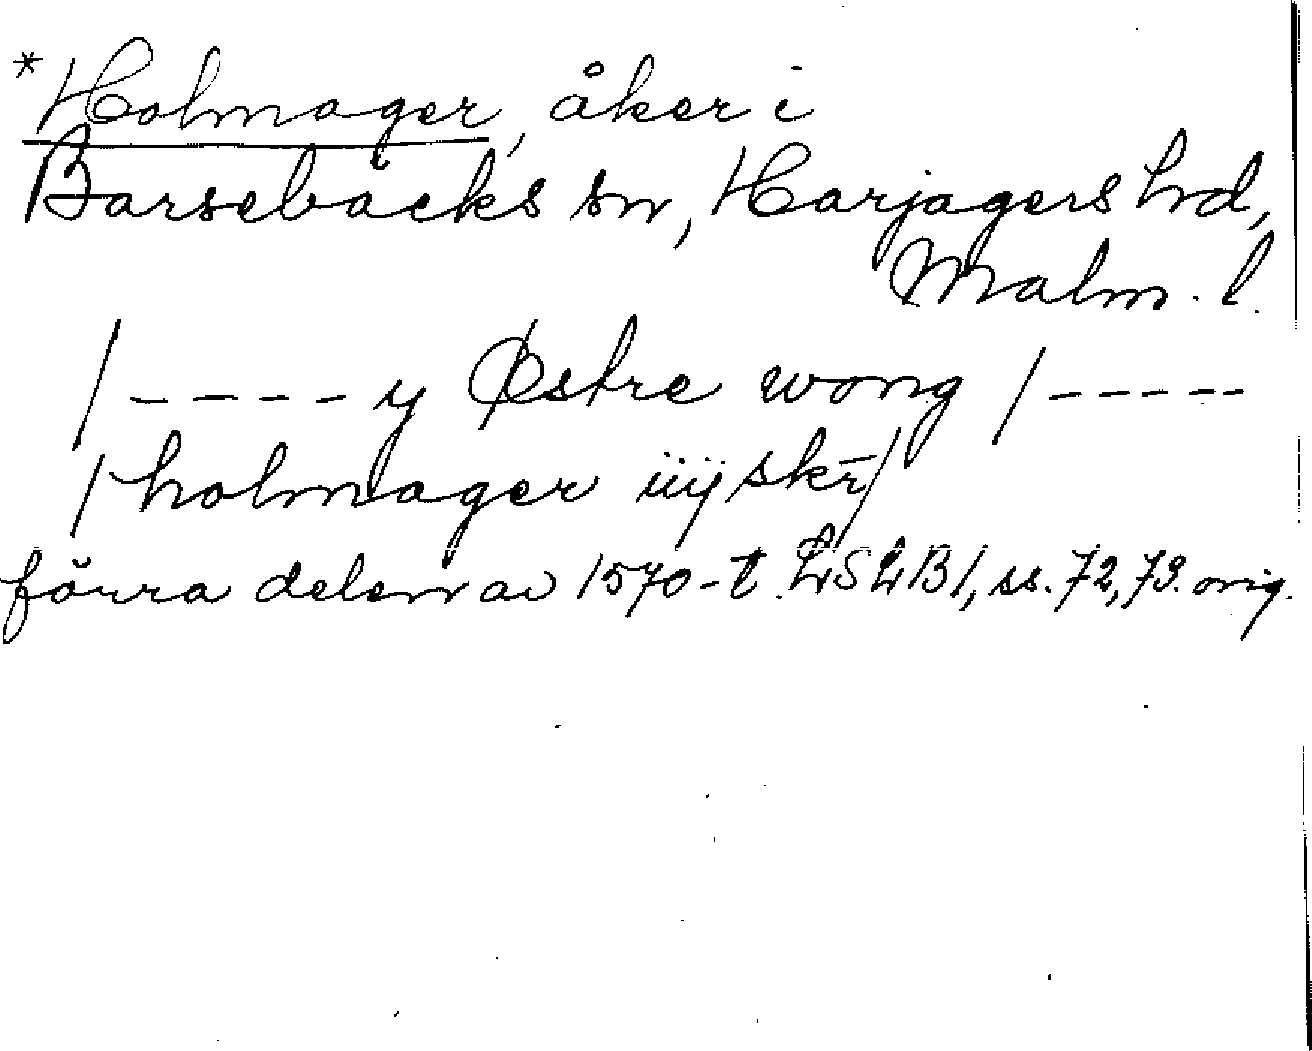 *Holmager, åker i
Barsebäcks sn, Harjagers hd,
Malm. l.
/ - - - - y Østre wong / - - - - -
/ holmager iiij skr̄ /
förra delen av 1570-t. LSLB1, ss. 72, 73. orig.